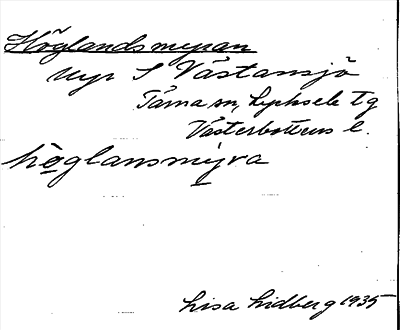 Höglandsmyran
Myr S Västansjö
Tärna sn, Lycksele tg
Västerbottens l.
höglansmyra
Lisa Lidberg 1935